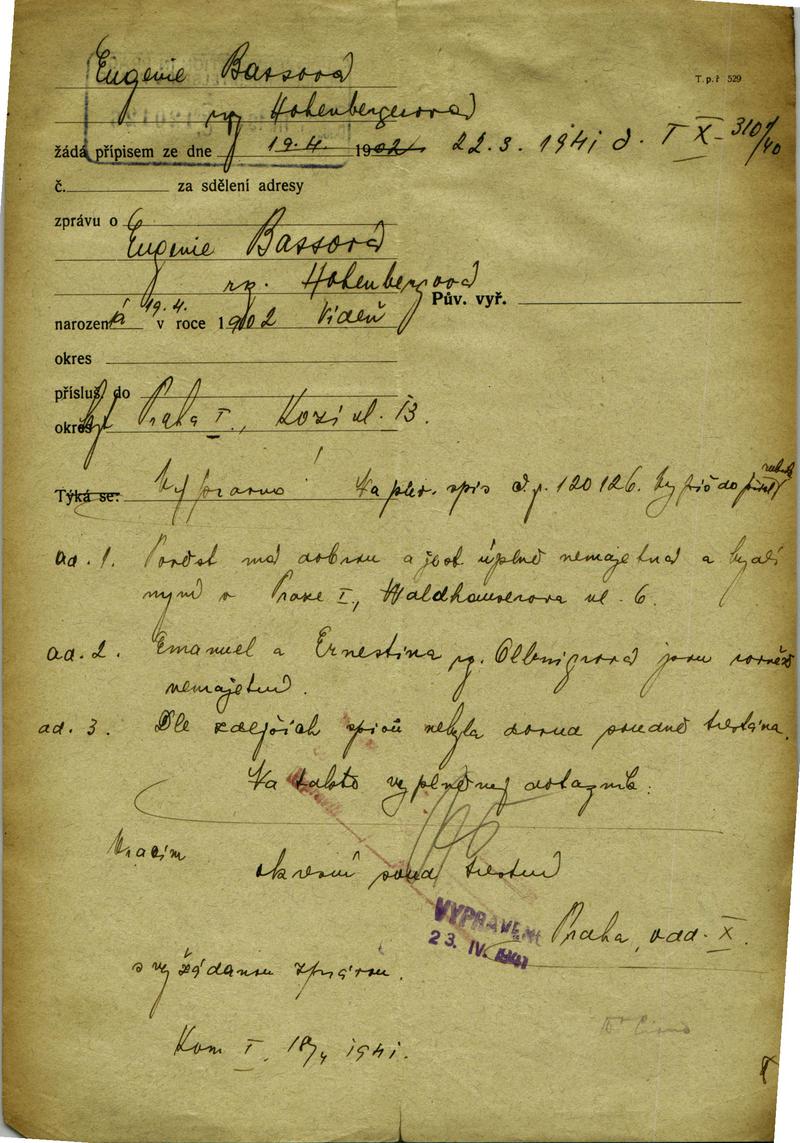 T. p. ř 529
Eugenie Bassová
roz. Hohenbergerová
žádá přípisem ze dne 19.4. 1902 22.3. 1941 č. T X - 310/40
č. za sdělení adresy
zprávu o
Eugenie Bassová
roz. Hohenbergrová
Pův. vyř.
narozená 19.4. v roce 1902 Vídeň
okres
přísluš. do
okres byt Praha I., Kozí ul. 13.
Týká se: Vypraveno! Na před. spis č.j. 120126.
ad. 1. Pověst má dobrou a jest úplně nemajetná a bydlí
nyní v Praze I., Waldhauserova ul. 6.
ad. 2. Emanuel a Ernestina roz. jsou rovněž
nemajetní.
ad. 3. Dle zdejších spisů nebyla dosud soudně trestána.
Na takto vyplněný dotazník:
Vracím
okresní soud trestní
VYPRAVENO
23. IV. 1941
Praha, odd. X.
s vyžádanou zprávou.
Kom I, 18/4 1941.